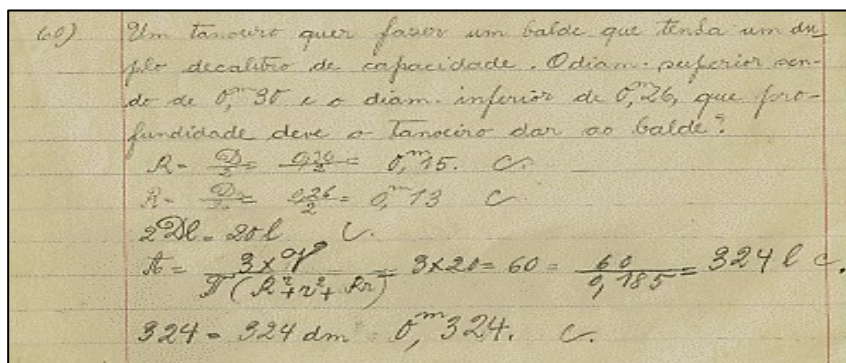 60) Um tanoeiro quer fazer um balde que tenha um du-
plo decalitro de capacidade. O diam. superior sen-
do de 0,m30 e o diam. inferior de 0,m26, que pro-
fundidade deve o tanoeiro dar ao balde?
R = D/2 = 0,30/2 = 0,m15. C.
R = D/2 = 0,26/2 = 0,m13 C
2Dl = 20l C.
A = 3×V/π(R²+r²+Rr) = 3×20 = 60 = 60/0,185 = 324 l C.
324 = 324 dm = 0,m324. C.